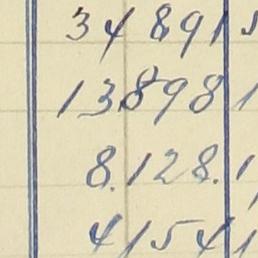 34891
13898
8.128.
41541